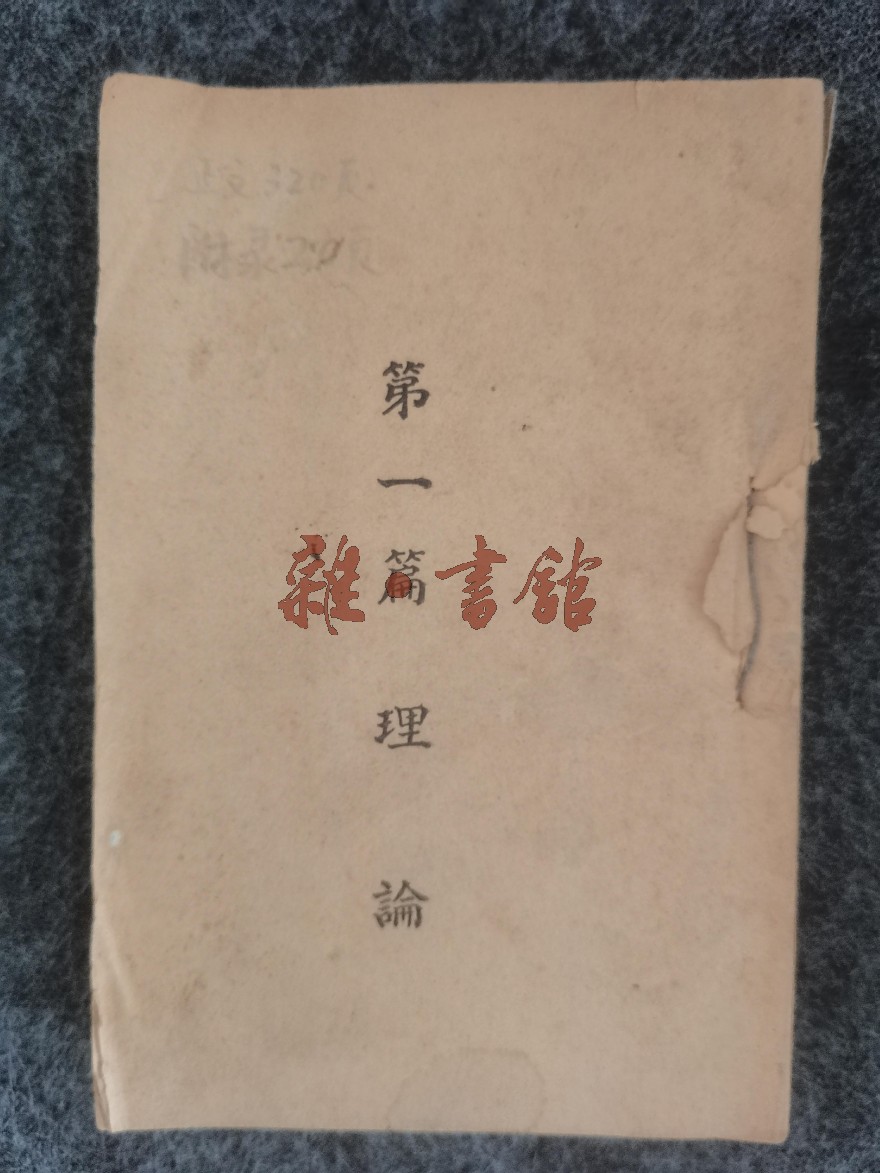 正文320页
附录20页
第一篇 理論
雜·書館